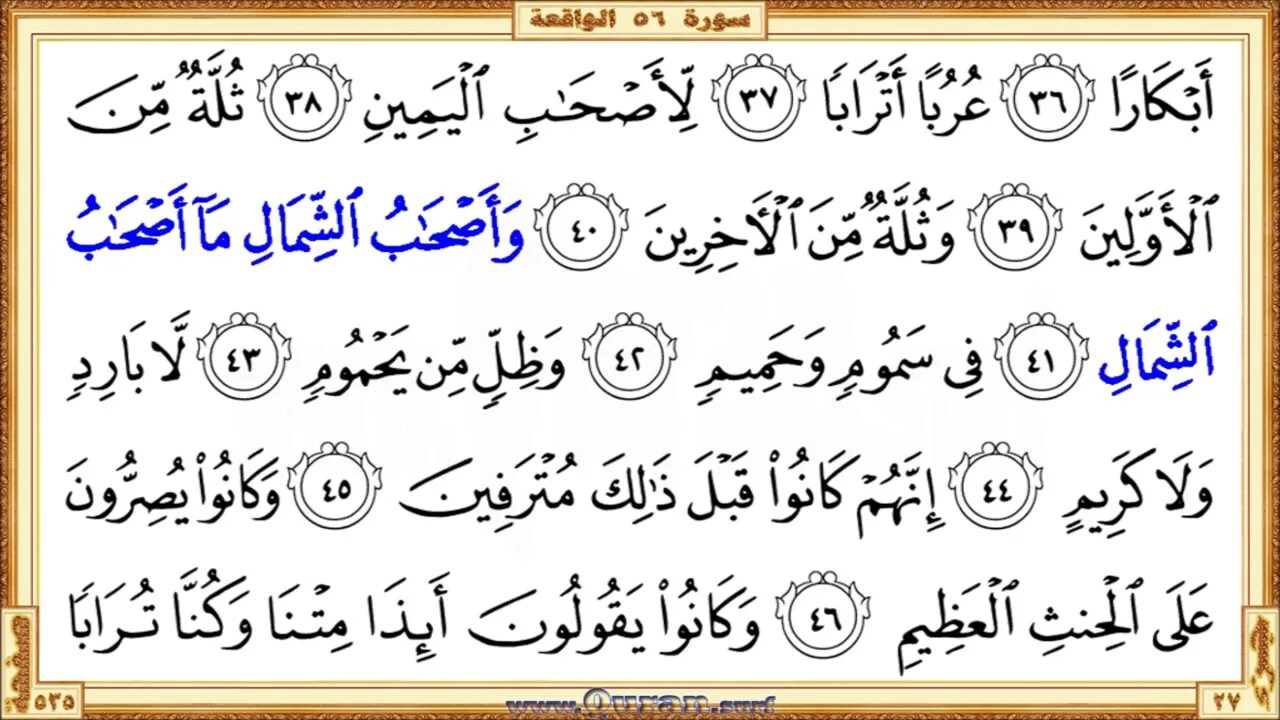 سورة ٥٦ الواقعة
أَبْكَارًا ٣٦ عُرُبًا أَتْرَابًا ٣٧ لِّأَصْحَٰبِ ٱلْيَمِينِ ٣٨ ثُلَّةٌ مِّنَ
ٱلْأَوَّلِينَ ٣٩ وَثُلَّةٌ مِّنَ ٱلْأَخِرِينَ ٤٠ وَأَصْحَٰبُ ٱلشِّمَالِ مَآ أَصْحَٰبُ
ٱلشِّمَالِ ٤١ فِى سَمُومٍ وَحَمِيمٍ ٤٢ وَظِلٍّ مِّن يَحْمُومٍ ٤٣ لَّا بَارِدٍ
وَلَا كَرِيمٍ ٤٤ إِنَّهُمْ كَانُوا۟ قَبْلَ ذَٰلِكَ مُتْرَفِينَ ٤٥ وَكَانُوا۟ يُصِرُّونَ
عَلَى ٱلْحِنثِ ٱلْعَظِيمِ ٤٦ وَكَانُوا۟ يَقُولُونَ أَئِذَا مِتْنَا وَكُنَّا تُرَابًا
الجزء
٢٧
www.Quran.smrf
الصفحة
٥٣٥